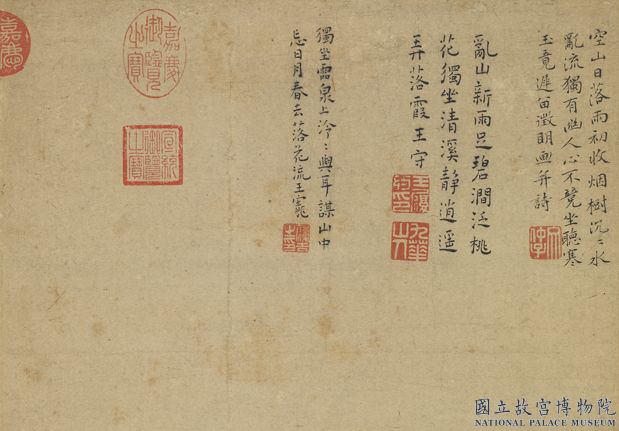 空山日落雨初收烟樹沉〻水
亂流獨有幽人心不競坐聽寒
玉竟遲留徵明畫并詩
亂山新雨足碧澗泛桃
花獨坐清溪靜逍遥
弄落霞王守
王履約印
獨坐雲泉上泠〻與耳謀山中
忘日月春去落花流王寵
嘉慶御覽之寶
宣統御覽之寶
嘉慶
國立故宮博物院
NATIONAL PALACE MUSEUM